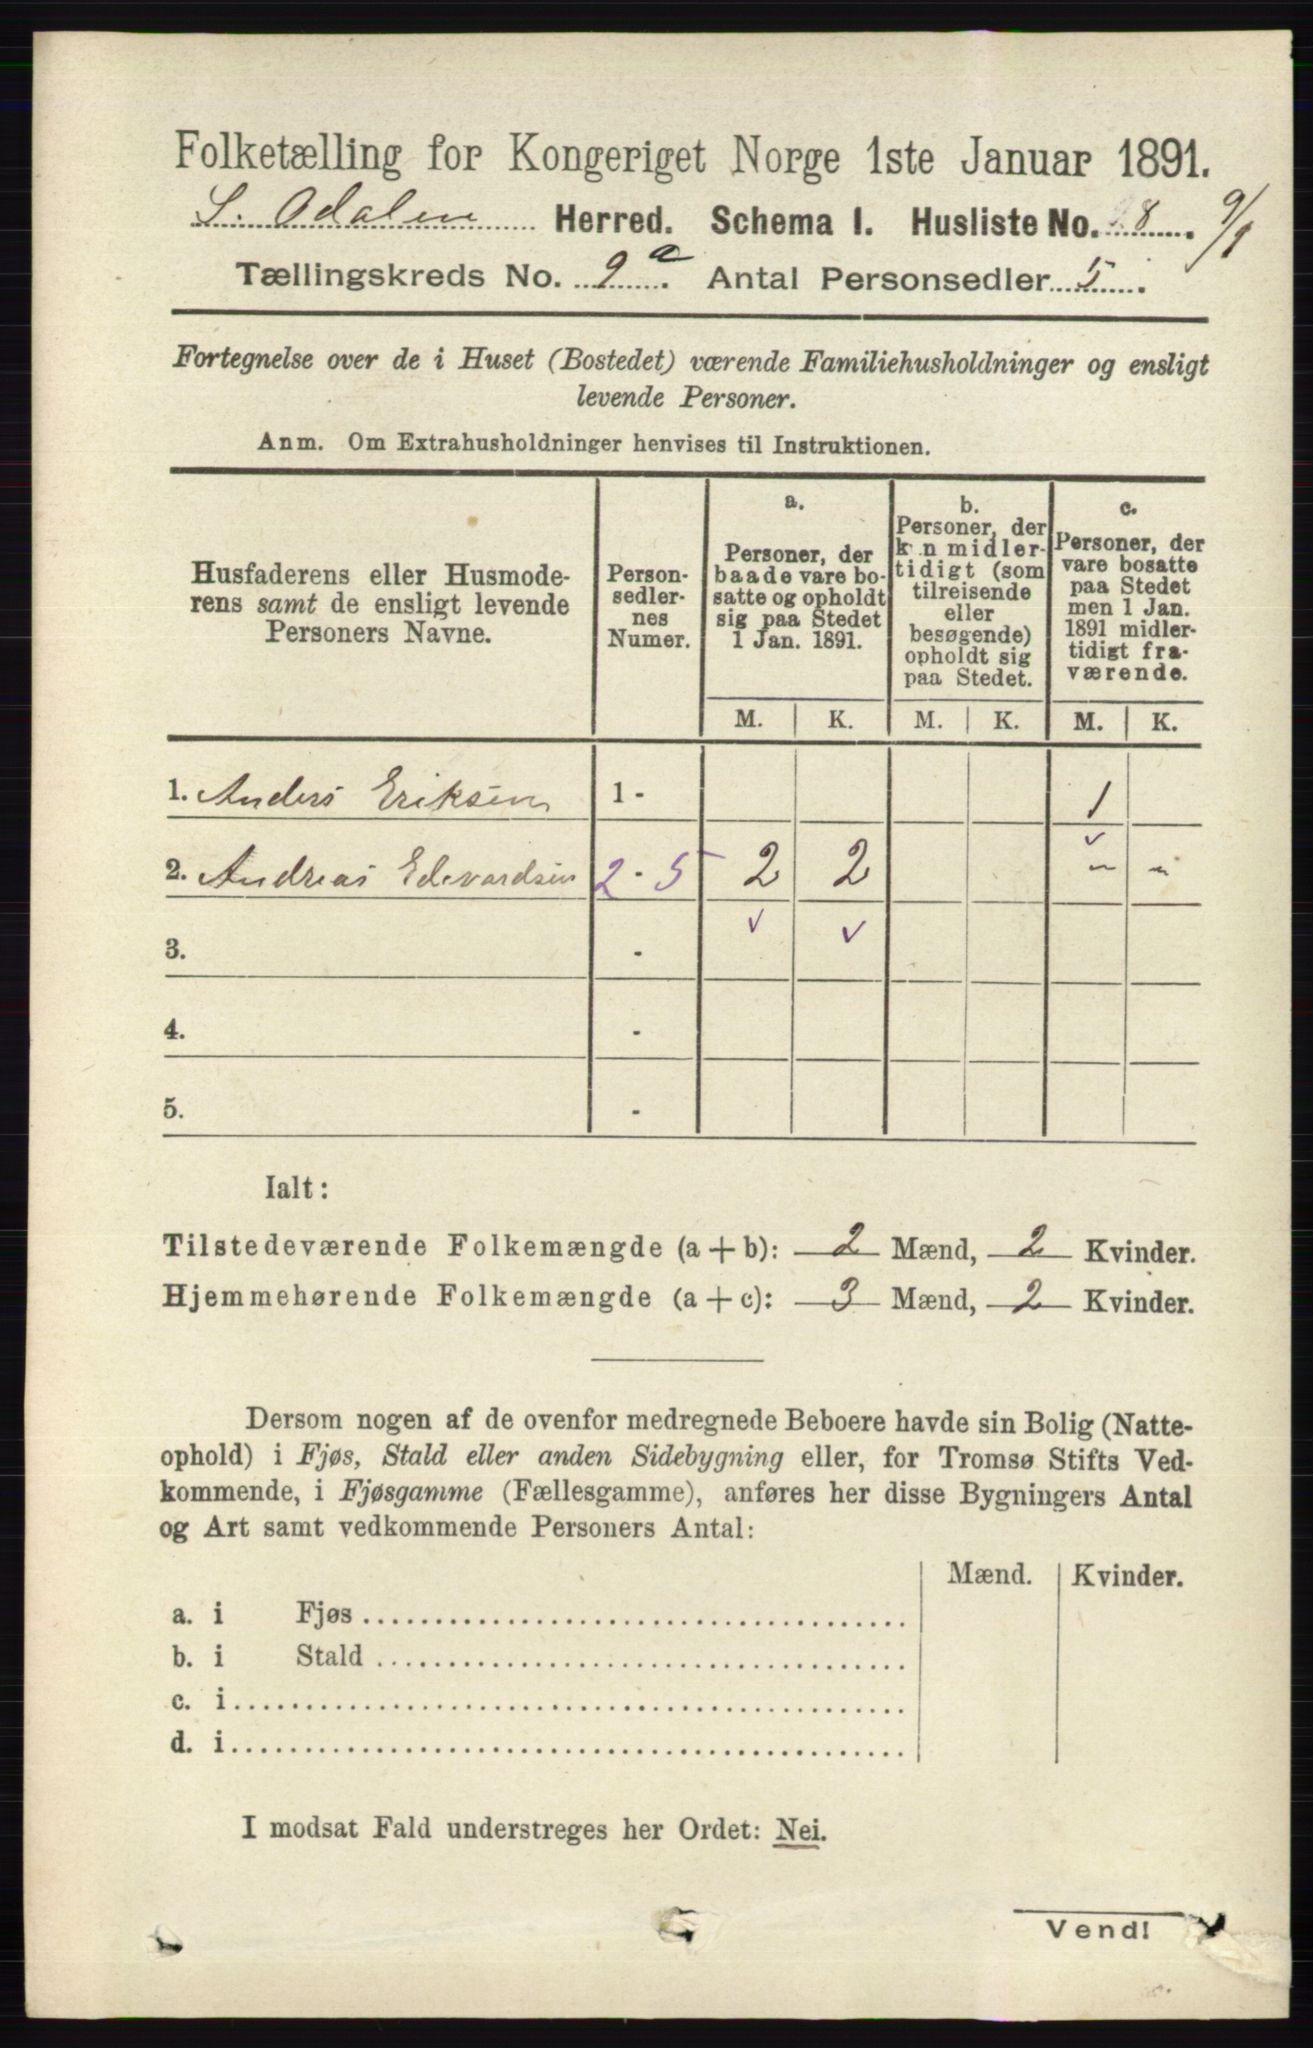 Folketælling for Kongeriget Norge 1ste Januar 1891.
S. Odalen Herred. Schema I. Husliste No. 28. 9/1
Tællingskreds No. 9a. Antal Personsedler 5.
Fortegnelse over de i Huset (Bostedet) værende Familiehusholdninger og ensligt
levende Personer.
Anm. Om Extrahusholdninger henvises til Instruktionen.
Husfaderens eller Husmode-
rens samt de ensligt levende
Personers Navne.
Person-
sedler-
nes
Numer.
a.
Personer, der
baade vare bo-
satte og opholdt
sig paa Stedet
1 Jan. 1891.
b.
Personer, der
kun midler-
tidigt (som
tilreisende
eller
besøgende)
opholdt sig
paa Stedet.
c.
Personer, der
vare bosatte
paa Stedet
men 1 Jan.
1891 midler-
tidigt fra-
værende.
M. K. M. K. M. K.
1. Anders Eriksen 1 - 1
2. Andreas Edevardsen 2 - 5 2 2 „ „
3. -
4. -
5. -
Ialt:
Tilstedeværende Folkemængde (a + b): 2 Mænd, 2 Kvinder.
Hjemmehørende Folkemængde (a + c): 3 Mænd, 2 Kvinder.
Dersom nogen af de ovenfor medregnede Beboere havde sin Bolig (Natte-
ophold) i Fjøs, Stald eller anden Sidebygning eller, for Tromsø Stifts Ved-
kommende, i Fjøsgamme (Fællesgamme), anføres her disse Bygningers Antal
og Art samt vedkommende Personers Antal:
Mænd. Kvinder.
a. i Fjøs
b. i Stald
c. i
d. i
I modsat Fald understreges her Ordet: Nei.
Vend!